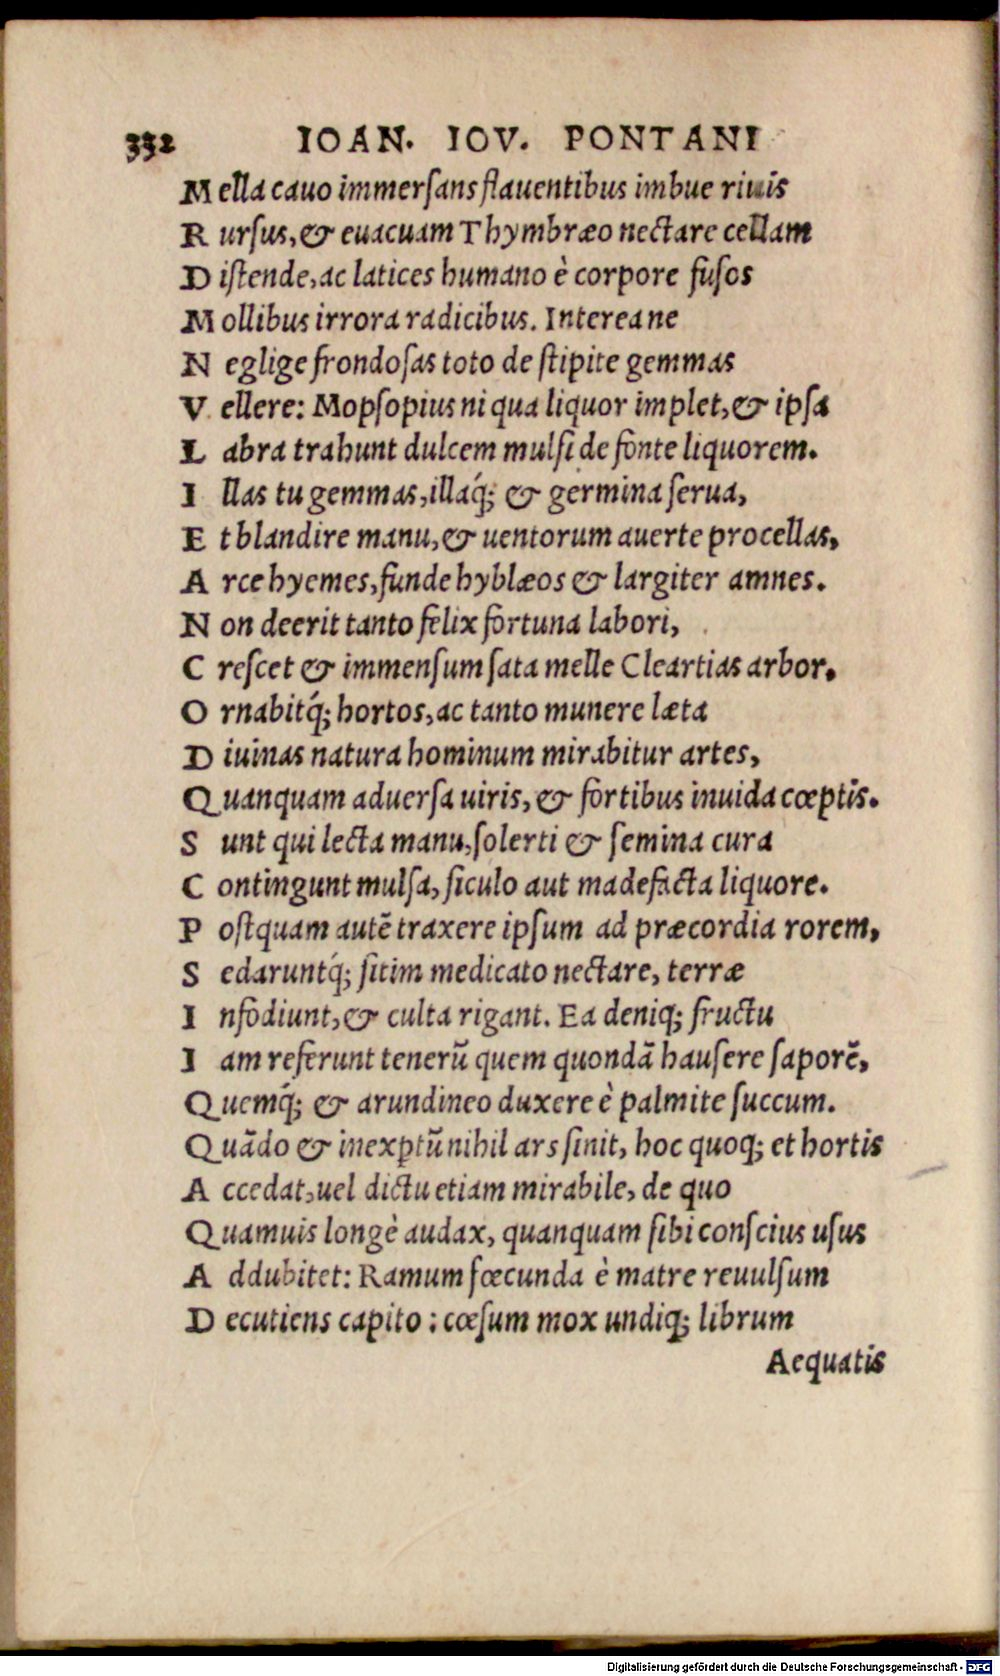 332 IOAN. IOV. PONTANI
Mella cauo immerſans flauentibus imbue riuis
Rurſus, & euacuam Thymbræo nectare cellam
Diſtende, ac latices humano è corpore fuſos
Mollibus irrora radicibus. Interea ne
Neglige frondoſas toto de ſtipite gemmas
Vellere: Mopſopius ni qua liquor implet, & ipſa
Labra trahunt dulcem mulſi de fonte liquorem.
Illas tu gemmas, illaq́; & germina ſerua,
Et blandire manu, & uentorum auerte procellas,
Arce hyemes, funde hyblæos & largiter amnes.
Non deerit tanto felix fortuna labori,
Creſcet & immenſum ſata melle Cleartias arbor.
Ornabitq́; hortos, ac tanto munere læta
Diuinas natura hominum mirabitur artes,
Quanquam aduerſa uiris, & fortibus inuida cœptis.
Sunt qui lecta manu, ſolerti & ſemina cura
Contingunt mulſa, ſiculo aut madefacta liquore.
Poſtquam autē traxere ipſum ad præcordia rorem,
Sedaruntq́; ſitim medicato nectare, terræ
Infodiunt, & culta rigant. Ea deniq; fructu
Iam referunt tenerū quem quondā hauſere ſaporē,
Quemq́; & arundineo duxere è palmite ſuccum.
Quādo & inexꝑtū nihil ars ſinit, hoc quoq; et hortis
Accedat, uel dictu etiam mirabile, de quo
Quamuis longè audax, quanquam ſibi conſcius uſus
Addubitet: Ramum fœcunda è matre reuulſum
Decutiens capito: cœſum mox undiq; librum
Aequatis
Digitalisierung gefördert durch die Deutsche Forschungsgemeinschaft - DFG